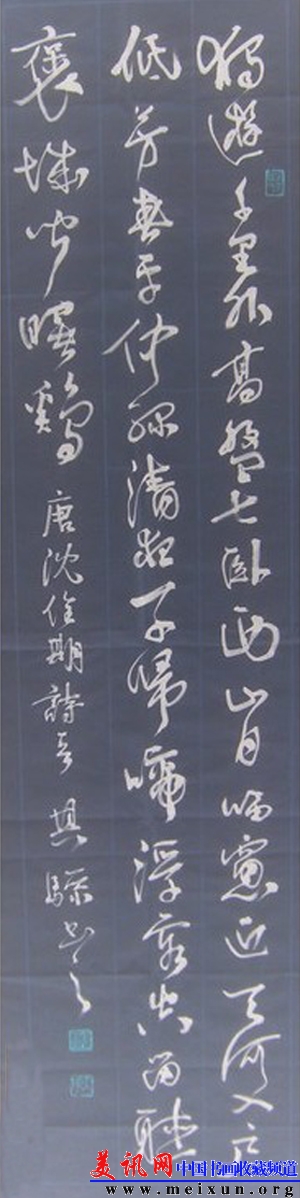 獨遊千里外高盤七臥西山月臨窻近天河入戶
低芳春平仲綠清夜子歸啼浮客空留聽
褒城聞曙鷄 唐沈佺期詩 其
美讯网 中国书画收藏频道
www.meixun.org